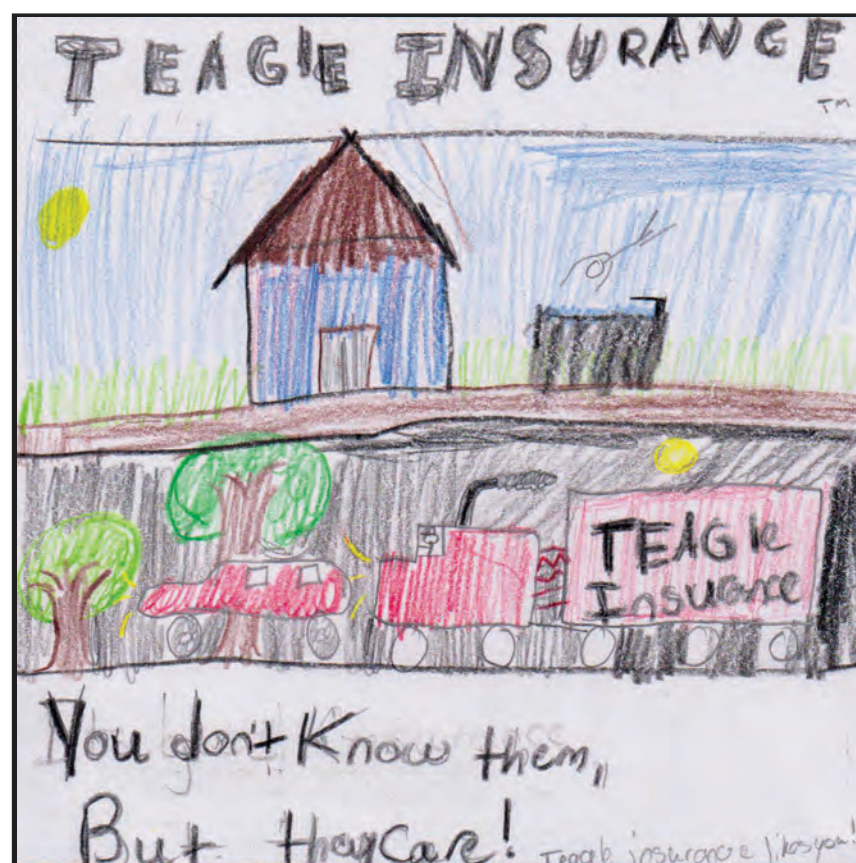 TEAGLE INSURANCE
TM
TEAGle
Insurance
You don't Know them,,
But they Care!
Teagle insurance likes you!